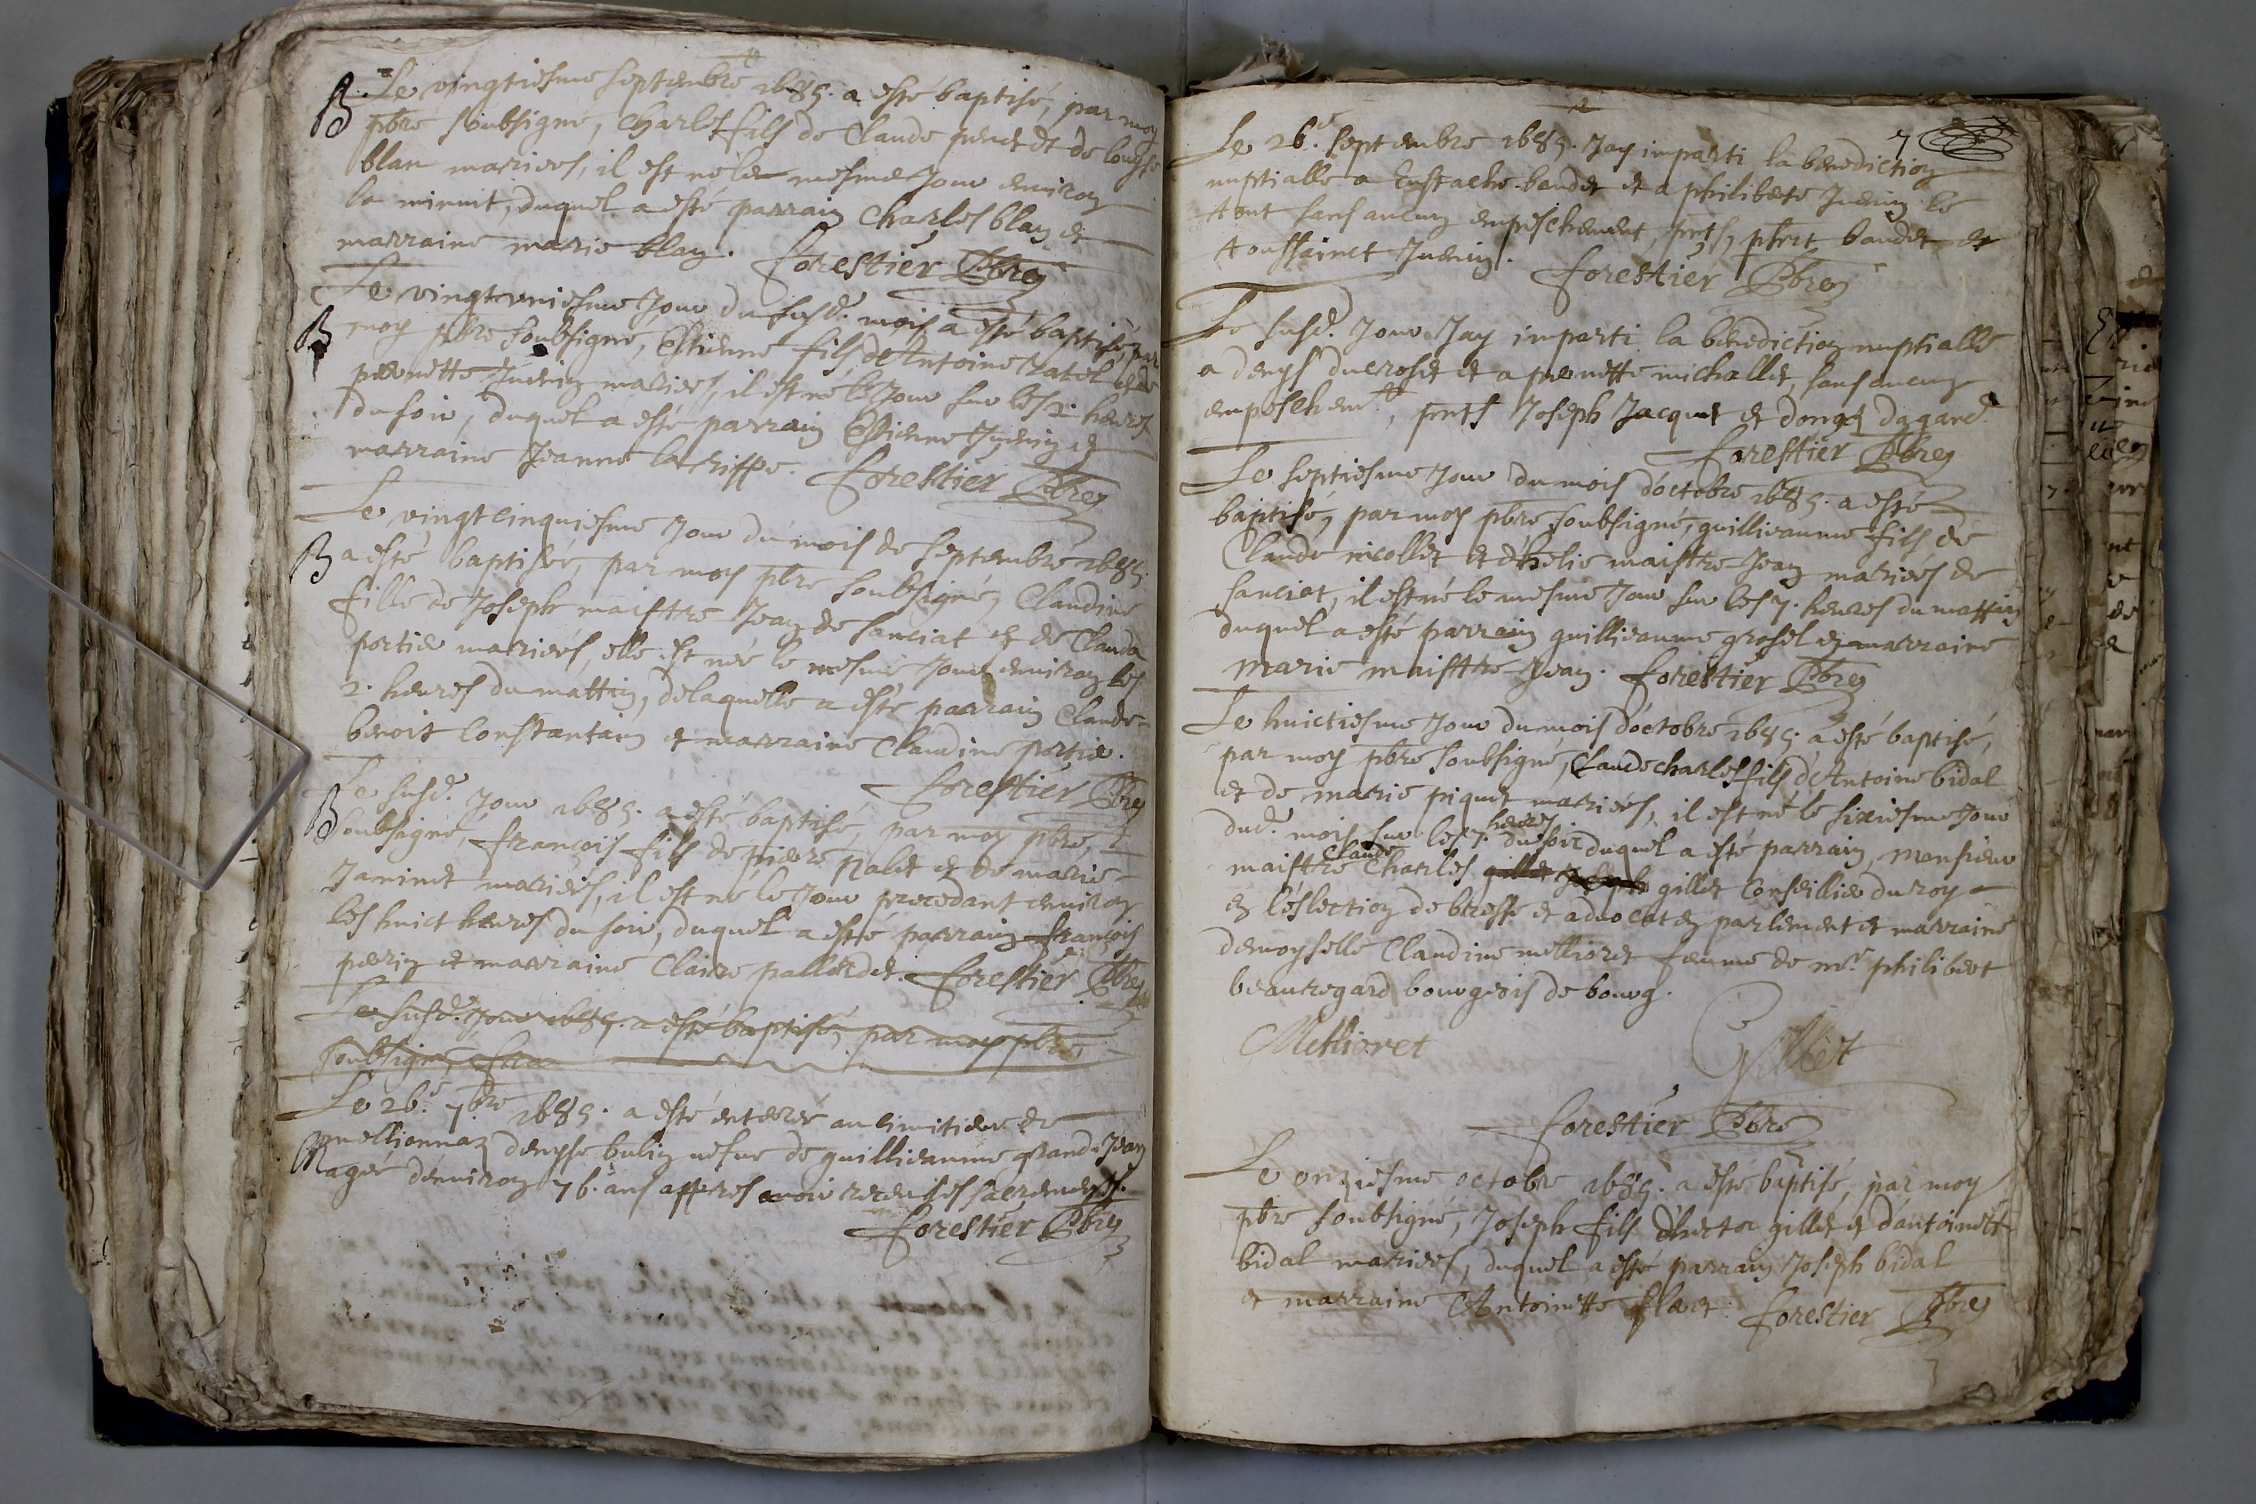 B Le vingtiesme septembre 1685. a esté baptisé, par moy
pbre soubsigné, Charles fils de Claude penet et de louyse
blan mariees, il est né le mesme Jour environ
la minuit, duquel a esté parrain Charles blan et
marraine marie blan. forestier Pbre
Le vingtuniesme Jour du susd. mois a esté baptisé, par
B moy pbre soubsigné, Estienne fils de Antoine Ratel et de
pernette Juenin mariees, il est né le Jour sur les 2. heures
du soir, duquel a esté parrain Estienne Juenin et
marraine Jeanne la riffe. forestier Pbre
Le vingtcinquiesme Jour du mois de septembre 1685.
B a esté baptisée, par moy pbre soubsigné, Claudine
fille de Joseph maisttre Jean de sanciat et de Clauda
portier mariees, elle est née le mesme Jour environ les
2. heures du mattin, de laquelle a esté parrain Claude
benoit Constantin et marraine Claudine portier.
forestier Pbre
Le susd. Jour 1685. a esté baptisé, par moy pbre,
B soubsigné, françois fils de pierre Nalet et de marie
Janinet mariees, il est né le Jour precedant environ
les huict heures du soir, duquel a esté parrain françois
perrin et marraine Claire pallordet. forestier Pbre
Le susd. Jour 1685. a esté baptisé, par moy pbre,
soubsigné, fran
Le 26.e 7bre 1685. a esté enterré au cimitiere de
meillionnaz denyse bulin vefve de guillieaume grand Jean
agée d'environ 76. ans appres avoir receu ses sacremens.
forestier Pbre
7
Le 26.e septembre 1685. Jay imparti la benediction
nuptialle a Eustache baudet et a philiberte Juenin le
tout sans aucun empeschement, pnts, pbert baudet et
toussainct Juenin. forestier Pbre
Le susd. Jour Jay imparti la benediction nuptialle
a denys ducroset et a pernette michallet, sans aucun
empeschemt, pnts Joseph Jacquet et donat dagand.
forestier Pbre
Le septiesme Jour du mois d'octobre 1685. a esté
baptisé, par moy pbre soubsigné, guillieaume fils de
Claude nicollet et d'helie maisttre Jean mariees de
sanciat, il est né le mesme Jour sur les 7. heures du mattin
duquel a esté parrain guillieaume grosel et marraine
marie maisttre Jean. forestier Pbre
Le huictiesme Jour du mois d'octobre 1685. a esté baptisé,
par moy pbre soubsigné, Claude charles fils d'Antoine bidal
et de marie piquet mariees, il est né le sixiesme Jour
dud. mois sur les 7. heures du soir duquel a esté parrain, monsieur
maisttre Claude Charles gillet Joseph gillet Conseillier du roy
en l'eslection de bresse et advocat en parlement et marraine
demoyselle Claudine mettioret femme de mr. philibert
beauregard bourgeois de bourg.
Mettioret Gillet
forestier Pbre
Le onziesme octobre 1685. a esté baptisé, par moy
pbre soubsigné, Joseph fils d'hector gillet et d'antoinette
bidal mariees, duquel a esté parrain Joseph bidal
et marraine Antoinette flaret. forestier Pbre